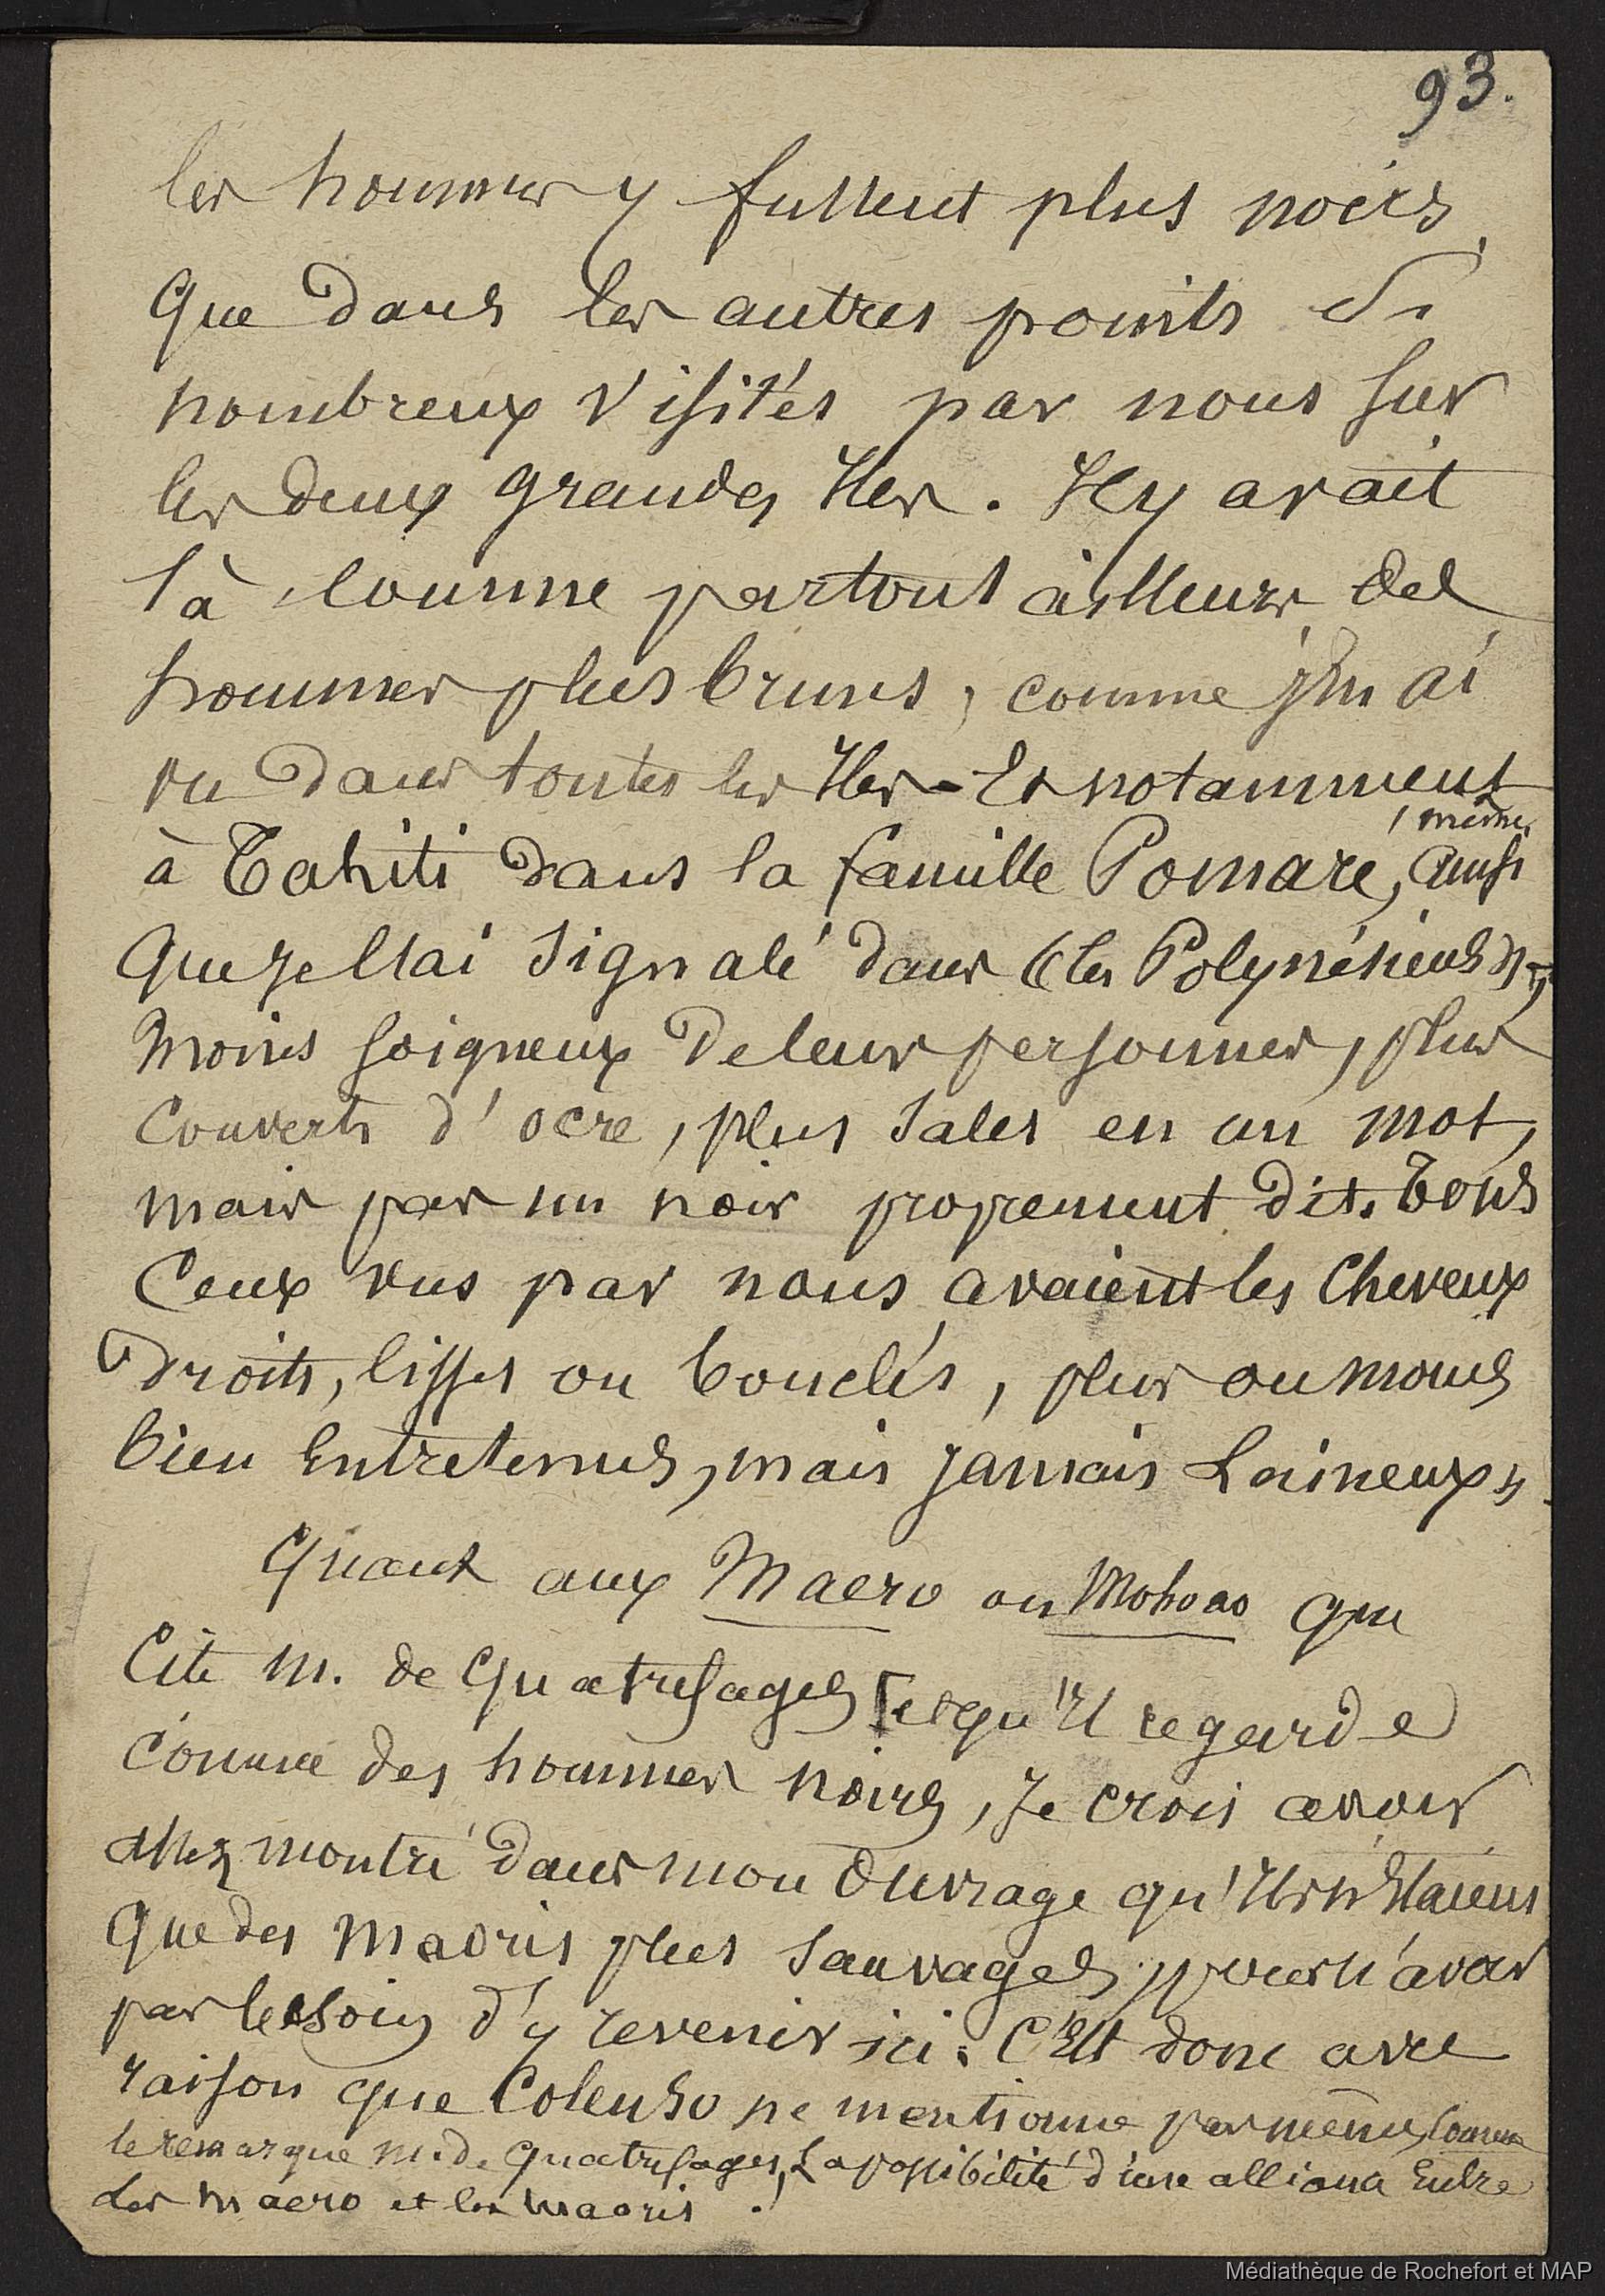 93.
les hommes y fussent plus noirs
que dans les autres points si
nombreux visités par nous sur
les deux grandes Iles. Il y avait
là comme partout ailleurs des
hommes plus bruns, comme j'en ai
vu dans toutes les Iles - Et notamment
à Tahiti dans la famille Pomaré, ainsi
même
que je l'ai signalé dans "les Polynésiens",
moins soigneux de leurs personnes, plus
couverts d'ocre, plus sales en un mot,
mais pas un noir proprement dit. Tous
Ceux vus par nous avaient les cheveux
droits, lisses ou bouclés, plus ou moins
bien entretenus, mais jamais Laineux.
Quant aux Maero ou Mohoao que
Cite M. de Quatrefages et qu'Il regarde
comme des hommes noirs, Je crois avoir
assez montré dans mon Ouvrage qu'Ils n'Etaient
que des Maoris plus sauvages, pour n'avoir
pas besoin d'y revenir ici. C'Est donc avec
raison que Colenso ne mentionne pas même, comme
le remarque M. de Quatrefages, La possibilité d'une alliance Entre
Les Maero et les Maoris.
Médiathèque de Rochefort et MAP